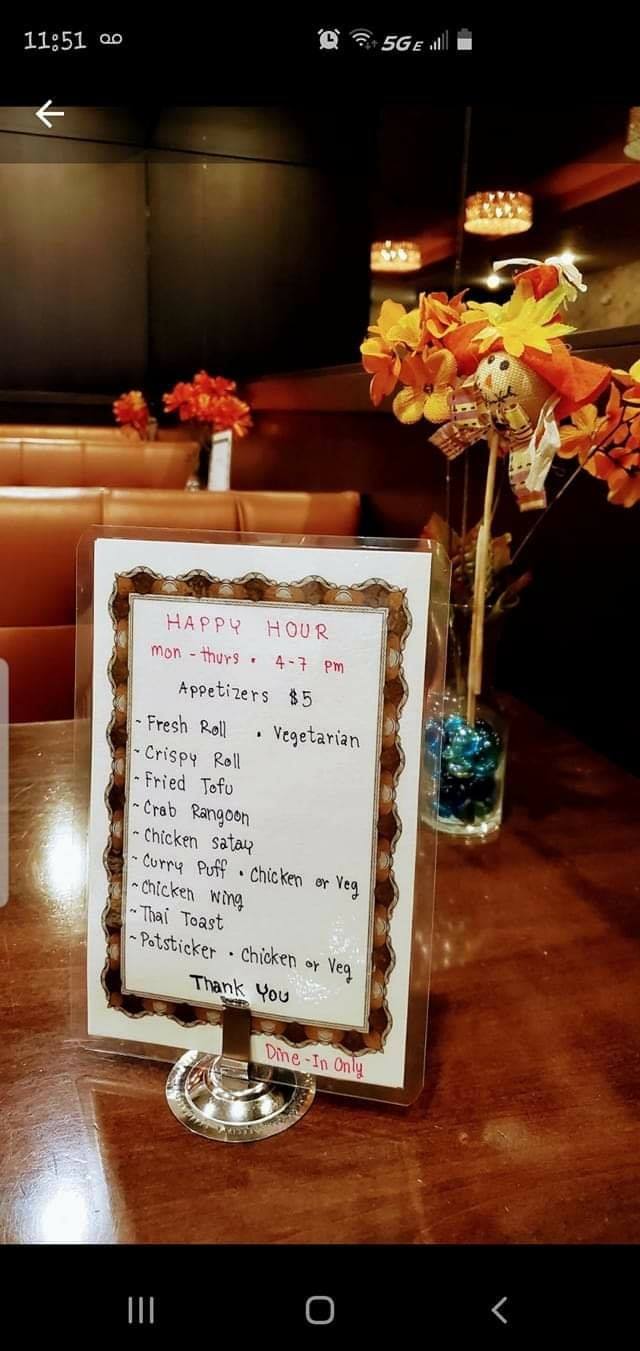 11:51
5GE
HAPPY HOUR
mon - thurs • 4-7 pm
Appetizers $5
~ Fresh Roll • Vegetarian
~ Crispy Roll
~ Fried Tofu
~ Crab Rangoon
~ Chicken satay
~ Curry Puff • Chicken or Veg
~ Chicken Wing
~ Thai Toast
~ Potsticker • Chicken or Veg
Thank You
Dine-In Only